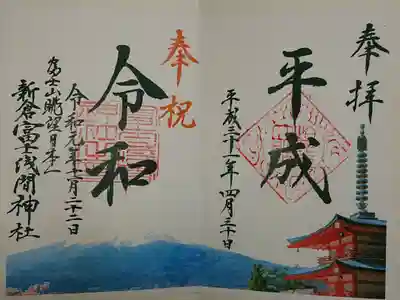 奉拝
平成
平成三十一年四月三十日
奉祝
令和
令和元年十一月二十二日
富士山眺望日本一
新倉富士浅間神社